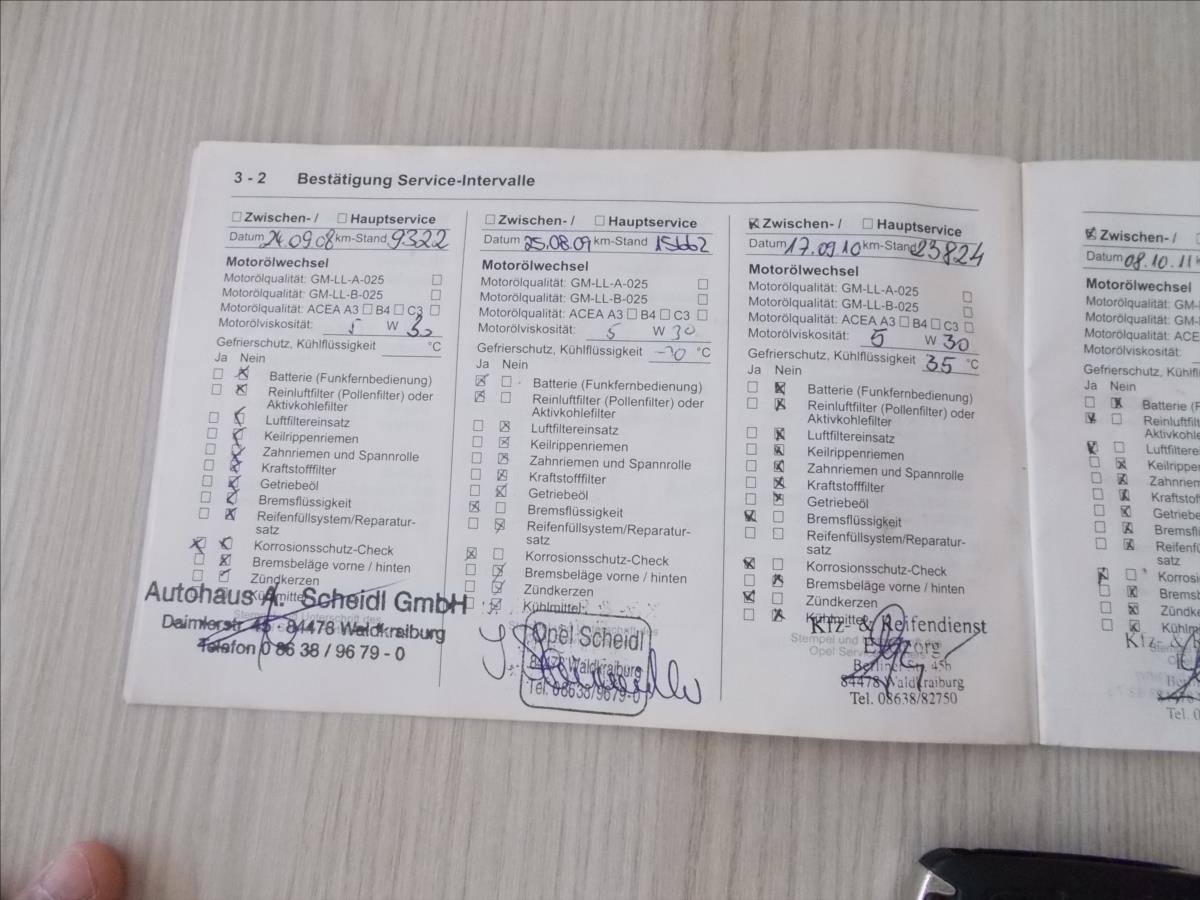 3 - 2 Bestätigung Service-Intervalle
Zwischen- / Hauptservice
Datum 24.09.08 km-Stand 9322
Motorölwechsel
Motorölqualität: GM-LL-A-025
Motorölqualität: GM-LL-B-025
Motorölqualität: ACEA A3 B4 C3
Motorölviskosität: 5 W 30
Gefrierschutz, Kühlflüssigkeit °C
Ja Nein
Batterie (Funkfernbedienung)
Reinluftfilter (Pollenfilter) oder
Aktivkohlefilter
Luftfiltereinsatz
Keilrippenriemen
Zahnriemen und Spannrolle
Kraftstofffilter
Getriebeöl
Bremsflüssigkeit
Reifenfüllsystem/Reparatur-
satz
Korrosionsschutz-Check
Bremsbeläge vorne / hinten
Zündkerzen
Kühlmittel
Autohaus A. Scheidl GmbH
Daimlerstr 45 - 84478 Waldkraiburg
Telefon 0 86 38 / 96 79 - 0
Zwischen- / Hauptservice
Datum 25.08.09 km-Stand 15662
Motorölwechsel
Motorölqualität: GM-LL-A-025
Motorölqualität: GM-LL-B-025
Motorölqualität: ACEA A3 B4 C3
Motorölviskosität: 5 W 30
Gefrierschutz, Kühlflüssigkeit °C
Ja Nein
Batterie (Funkfernbedienung)
Reinluftfilter (Pollenfilter) oder
Aktivkohlefilter
Luftfiltereinsatz
Keilrippenriemen
Zahnriemen und Spannrolle
Kraftstofffilter
Getriebeöl
Bremsflüssigkeit
Reifenfüllsystem/Reparatur-
satz
Korrosionsschutz-Check
Bremsbeläge vorne / hinten
Zündkerzen
Kühlmittel
Opel Scheidl
84478 Waldkraiburg
Tel. 08638/9679-0
Zwischen- / Hauptservice
Datum 17.09.10 km-Stand 23824
Motorölwechsel
Motorölqualität: GM-LL-A-025
Motorölqualität: GM-LL-B-025
Motorölqualität: ACEA A3 B4 C3
Motorölviskosität: 5 W 30
Gefrierschutz, Kühlflüssigkeit 35 °C
Ja Nein
Batterie (Funkfernbedienung)
Reinluftfilter (Pollenfilter) oder
Aktivkohlefilter
Luftfiltereinsatz
Keilrippenriemen
Zahnriemen und Spannrolle
Kraftstofffilter
Getriebeöl
Bremsflüssigkeit
Reifenfüllsystem/Reparatur-
satz
Korrosionsschutz-Check
Bremsbeläge vorne / hinten
Zündkerzen
Kühlmittel
Kfz- & Reifendienst
Berliner Str. 45b
84478 Waldkraiburg
Tel. 08638/82750
Zwischen- /
Datum 08.10.11
Motorölwechsel
Motorölqualität: GM-L
Motorölqualität: GM-L
Motorölqualität: ACE
Motorölviskosität:
Gefrierschutz, Kühlfl
Ja Nein
Batterie (F
Reinluftfil
Aktivkohle
Luftfiltere
Keilrippe
Zahnriem
Kraftstof
Getriebe
Bremsfl
Reifenfü
satz
Korros
Bremsb
Zündke
Kühlm
Kfz-
Tel. 0